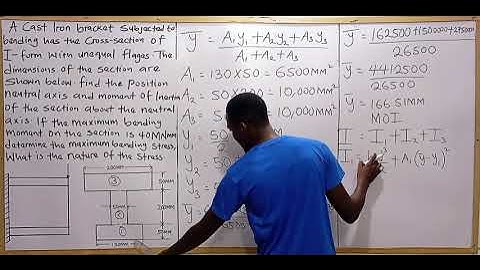 A Cast Iron bracket Subjected to
bending has the Cross-section of
I-form with unequal flages. The
dimensions of the section are
Shown below find the Position
neutral axis and moment of Inertia
of the section about the neutral
axis. If the maximum bending
moment on the section is 40MNmm
determine the maximum bending stress.
What is the nature of the Stress.
200mm
③
50mm
50mm
②
200mm
①
50mm
130mm
ȳ = A₁y₁ + A₂y₂ + A₃y₃
A₁ + A₂ + A₃
A₁ = 130 × 50 = 6500mm²
A₂ = 50 × 200 = 10,000mm²
A₃ = 10,000mm²
y₁ = 50
2
y₂ = 50
y₃ =
ȳ =
ȳ = 162500 + 1500000 + 275000
26500
ȳ = 4412500
26500
ȳ = 166.51mm
MOI
I = I₁ + I₂ + I₃
I₁ = + A₁(y-y₁)²